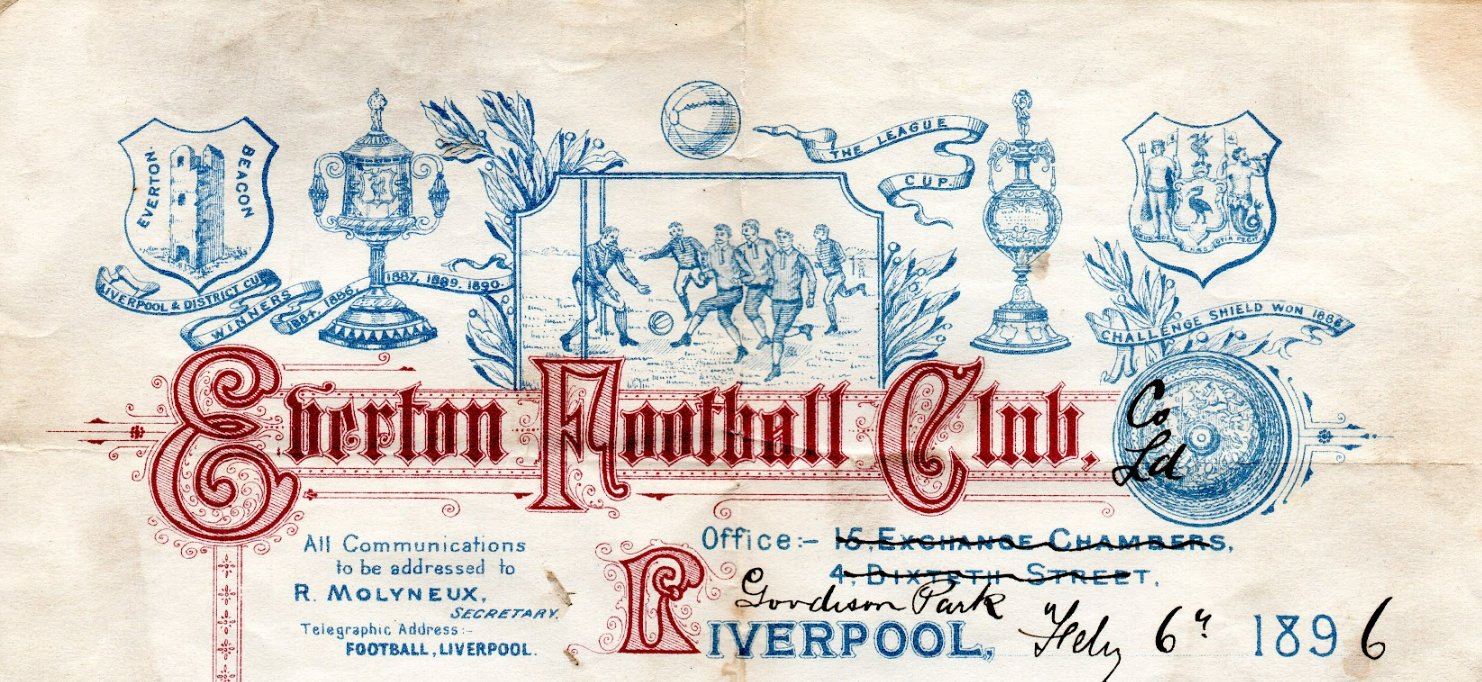 EVERTON BEACON
LIVERPOOL & DISTRICT CUP
WINNERS
1884. 1886. 1887. 1889. 1890.
THE LEAGUE
CUP.
CHALLENGE SHIELD WON 1886
Everton Football Club, Co
Ld
All Communications
to be addressed to
R. MOLYNEUX,
SECRETARY.
Telegraphic Address:-
FOOTBALL, LIVERPOOL.
Office:- 15, EXCHANGE CHAMBERS,
4, DIXTETH STREET,
Goodison Park
LIVERPOOL, Feby 6th 1896